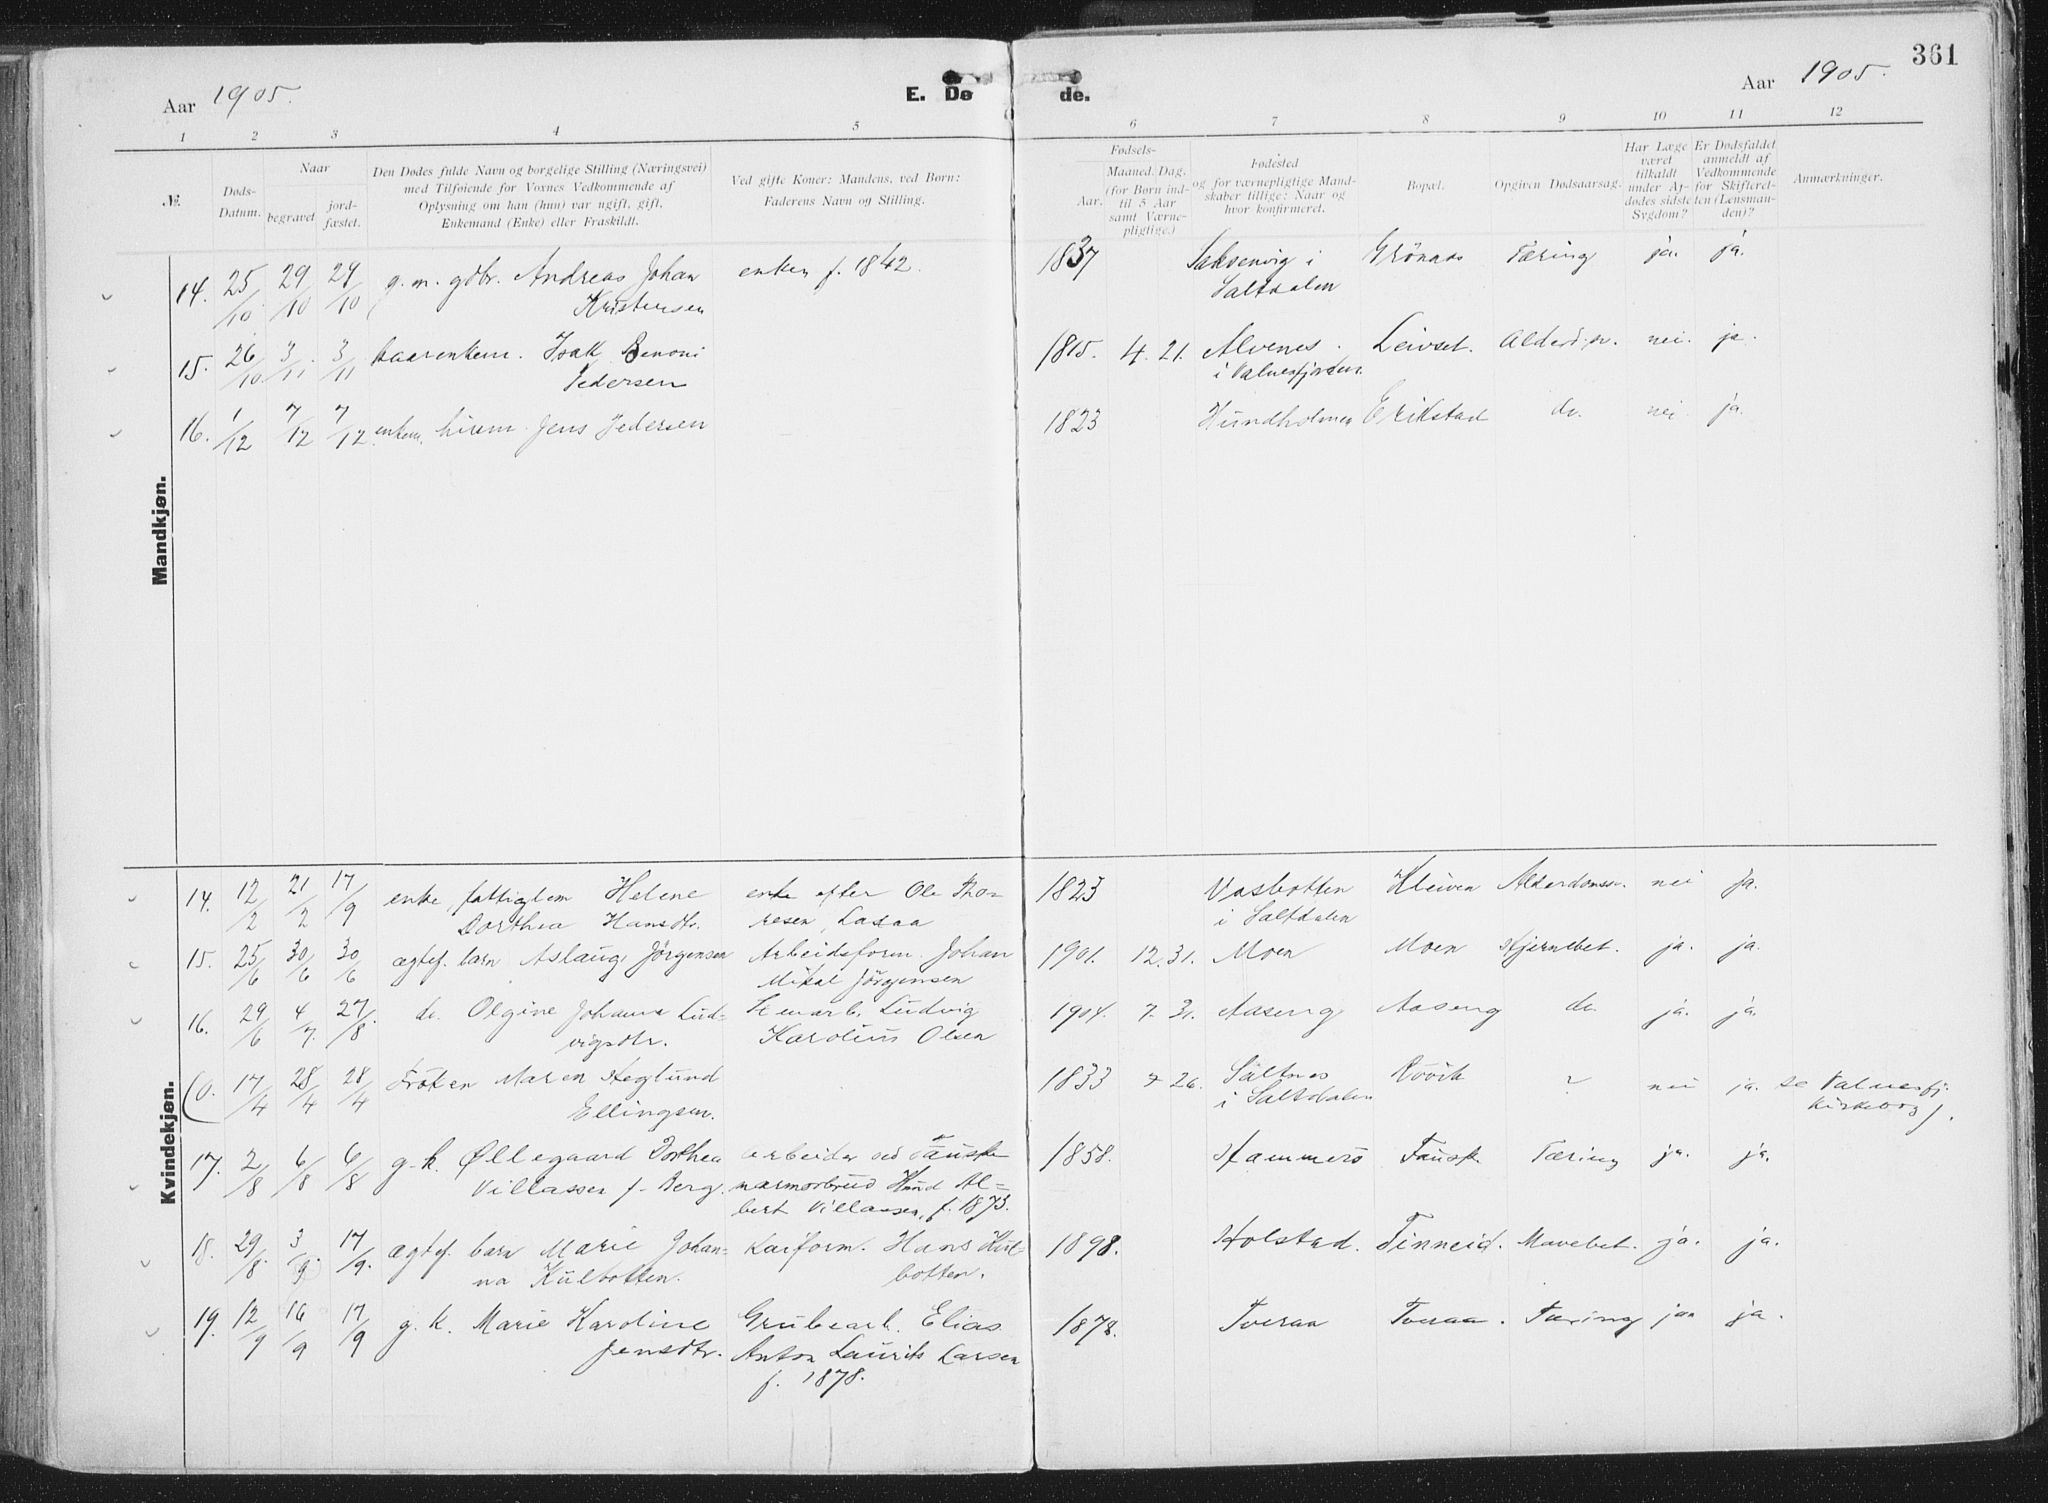 361
Aar 1905. E. Dø de. Aar 1905.
1 2 3 4 5 6 7 8 9 10 11 12
№. Døds-Datum. Naar begravet jordfæstet. Den Dødes fulde Navn og borgelige Stilling (Næringsvei) med Tilføiende for Voxnes Vedkommende af Oplysning om han (hun) var ugift, gift, Enkemand (Enke) eller Fraskildt. Ved gifte Koner: Mandens, ved Børn: Faderens Navn og Stilling. Fødsels- Aar. Maaned. Dag. (for Børn indtil 5 Aar samt Værnepligtige.) Fødested og for værnepligtige Mandskaber tillige: Naar og hvor konfirmeret. Bopæl. Opgiven Dødsaarsag. Har Læge været tilkaldt under Afdødes sidste Sygdom? Er Dødsfaldet anmeldt af Vedkommende for Skifteretten (Lensmanden)? Anmærkninger.
Mandkjøn.
14. 25/10 29/10 29/10 g. m. gdbr. Andreas Johan enken f. 1842. 1837 Saksenvig i Grönaas Tæring ja. ja.
Kristensen Saltdalen
15. 26/10 3/11 3/11 kaarenkem. Isak Benoni 1815. 4. 21. Alvenes Leivset. Alderd.sv. nei. ja.
Pedersen i Valnesfjorden
16. 1/12 7/12 7/12 enkem. hirem. Jens Pedersen 1823 Hundholmen Erikstad do. nei. ja
Kvindekjøn.
14. 12/2 21/2 17/9 enke, fattiglem Helene enke efter Ole Tho- 1823 Vasbotten Kleiven Alderdomssv. nei ja.
Dorthea Hansdtr. resen, Lasaa i Saltdalen
15. 25/6 30/6 30/6 ægtef. barn Aslaug Jørgensen Arbeidsform. Johan 1901. 12. 31. Moen Moen Hjernebet. ja. ja.
Mikal Jörgensen
16. 29/6 4/7. 27/8. do. Olgine Johanna Lud- Stenarb. Ludvig 1904. 7. 31. Aaseng Aaseng do. ja. ja.
vigsdtr. Karolius Olsen
(0. 17/4 28/4 28/4 Frøken Maren Steglund 1833 7 26. Saltnes Røvik ? nei ja. se Valnesfj.
Ellingsen. i Saltdalen kirkebog).
17. 2/8 6/8 6/8 g. k. Øllegaard Dorthea arbeider ved Fauske 1858. Hammerö Fauske Tæring ja. ja.
Villassen f. Berg. marmorbrud Knud Al-
bert Villassen, f. 1873.
18. 29/8. 3/9. 17/9. ægtef. barn Marie Johan- Kaiform. Hans Kul- 1898. Holstad. Finneid. Mavebet. ja. ja.
na Kulbotten. botten.
19. 12/9 16/9 17/9 g. k. Marie Karoline Grubearb. Elias 1878. Tveraa Tveraa. Tæring jaa ja.
Jensdtr. Anton Laurits Larsen
f. 1878.